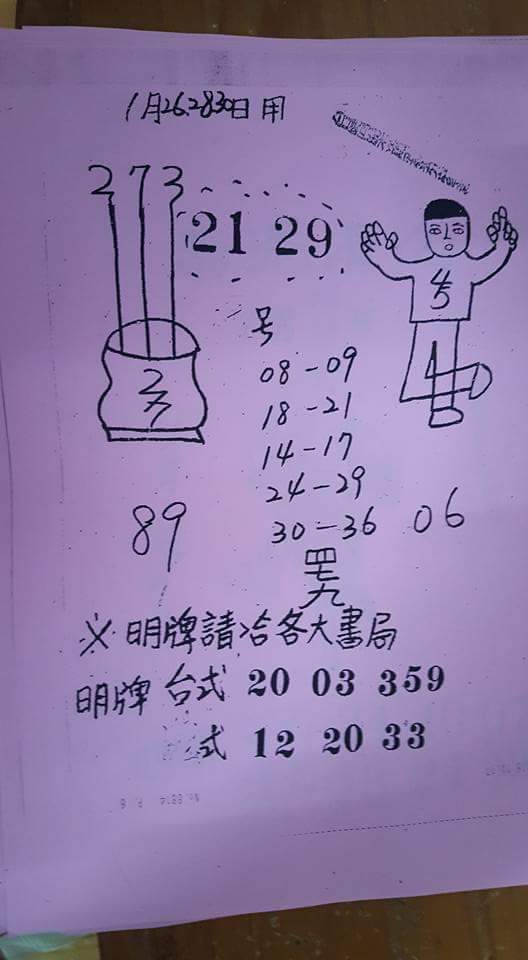 1月26.28.30日 用
2 7 3
21 29
号
08-09
18-21
14-17
24-29
30-36
06
89
四
七
九
※ 明牌請洽各大書局
明牌 台式 20 03 359
式 12 20 33